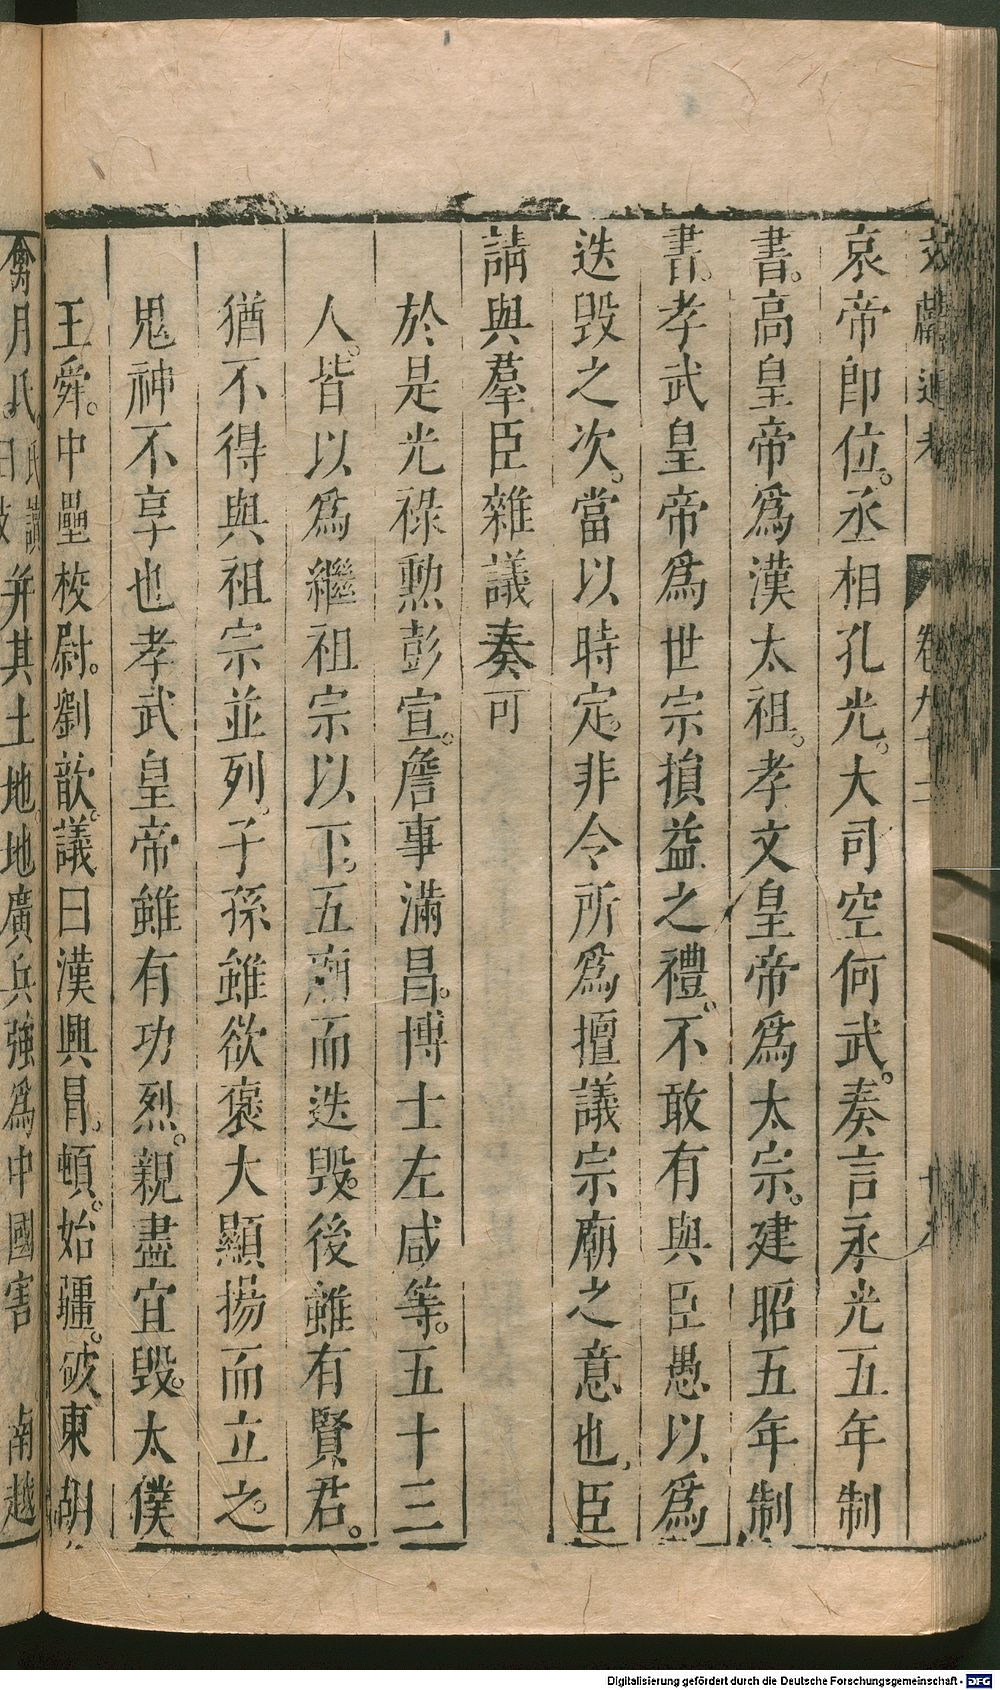 文獻通考 卷九十二
哀帝卽位。丞相孔光。大司空何武。奏言永光五年制
書。高皇帝爲漢太祖。孝文皇帝爲太宗。建昭五年制
書。孝武皇帝爲世宗損益之禮。不敢有與臣愚以爲
迭毀之次。當以時定。非令所爲擅議宗廟之意也,臣
請與羣臣雜議奏可
於是光祿勲彭宣。詹事滿昌。博士左咸等。五十三
人。皆以爲繼祖宗以下。五廟而迭毀。後雖有賢君。
猶不得與祖宗並列。子孫雖欲褒大顯揚而立之。
鬼神不享也孝武皇帝雖有功烈。親盡宜毀。太僕
王舜。中壘校尉。劉歆。議曰漢興冒,頓。始疆。破東胡
禽月氏。氏讀曰支并其土地。地廣兵強爲中國害 南越
Digitalisierung gefördert durch die Deutsche Forschungsgemeinschaft - DFG